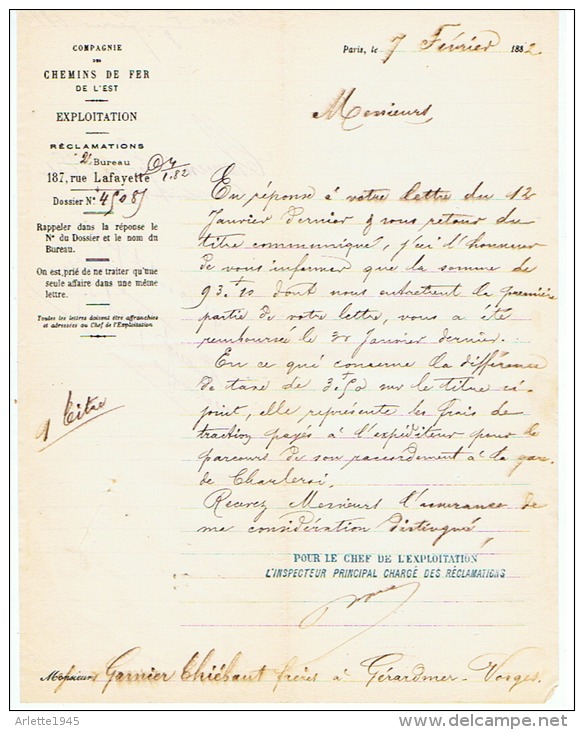 COMPAGNIE
DES
CHEMINS DE FER
DE L'EST
EXPLOITATION
RÉCLAMATIONS
2e Bureau
187, rue Lafayette
1.82
Dossier N°. 45085
Rappeler dans la réponse le
N° du Dossier et le nom du
Bureau.
On est prié de ne traiter qu'une
seule affaire dans une même
lettre.
Toutes les lettres doivent être affranchies
et adressées au Chef de l'Exploitation
1 titre
Paris, le 7 Février 1882
Messieurs,
En réponse à votre lettre du 12
Janvier dernier & sous retour du
titre communiqué, j'ai l'honneur
de vous informer que la somme de
93.f10 dont nous entretient la première
partie de votre lettre, vous a été
remboursé le 30 Janvier dernier.
En ce qui concerne la différence
de taxe de 3.f50 sur le titre ci-
joint, elle représente les frais de
traction payés à l'expéditeur pour le
parcours de son raccordement à la gare
de Charleroi.
Recevez Messieurs l'assurance de
ma considération distingué
POUR LE CHEF DE L'EXPLOITATION
L'INSPECTEUR PRINCIPAL CHARGÉ DES RÉCLAMATIONS
Messieurs Garnier Thiébaut frères à Gérardmer - Vosges.
Arlette1945
www.delcampe.net